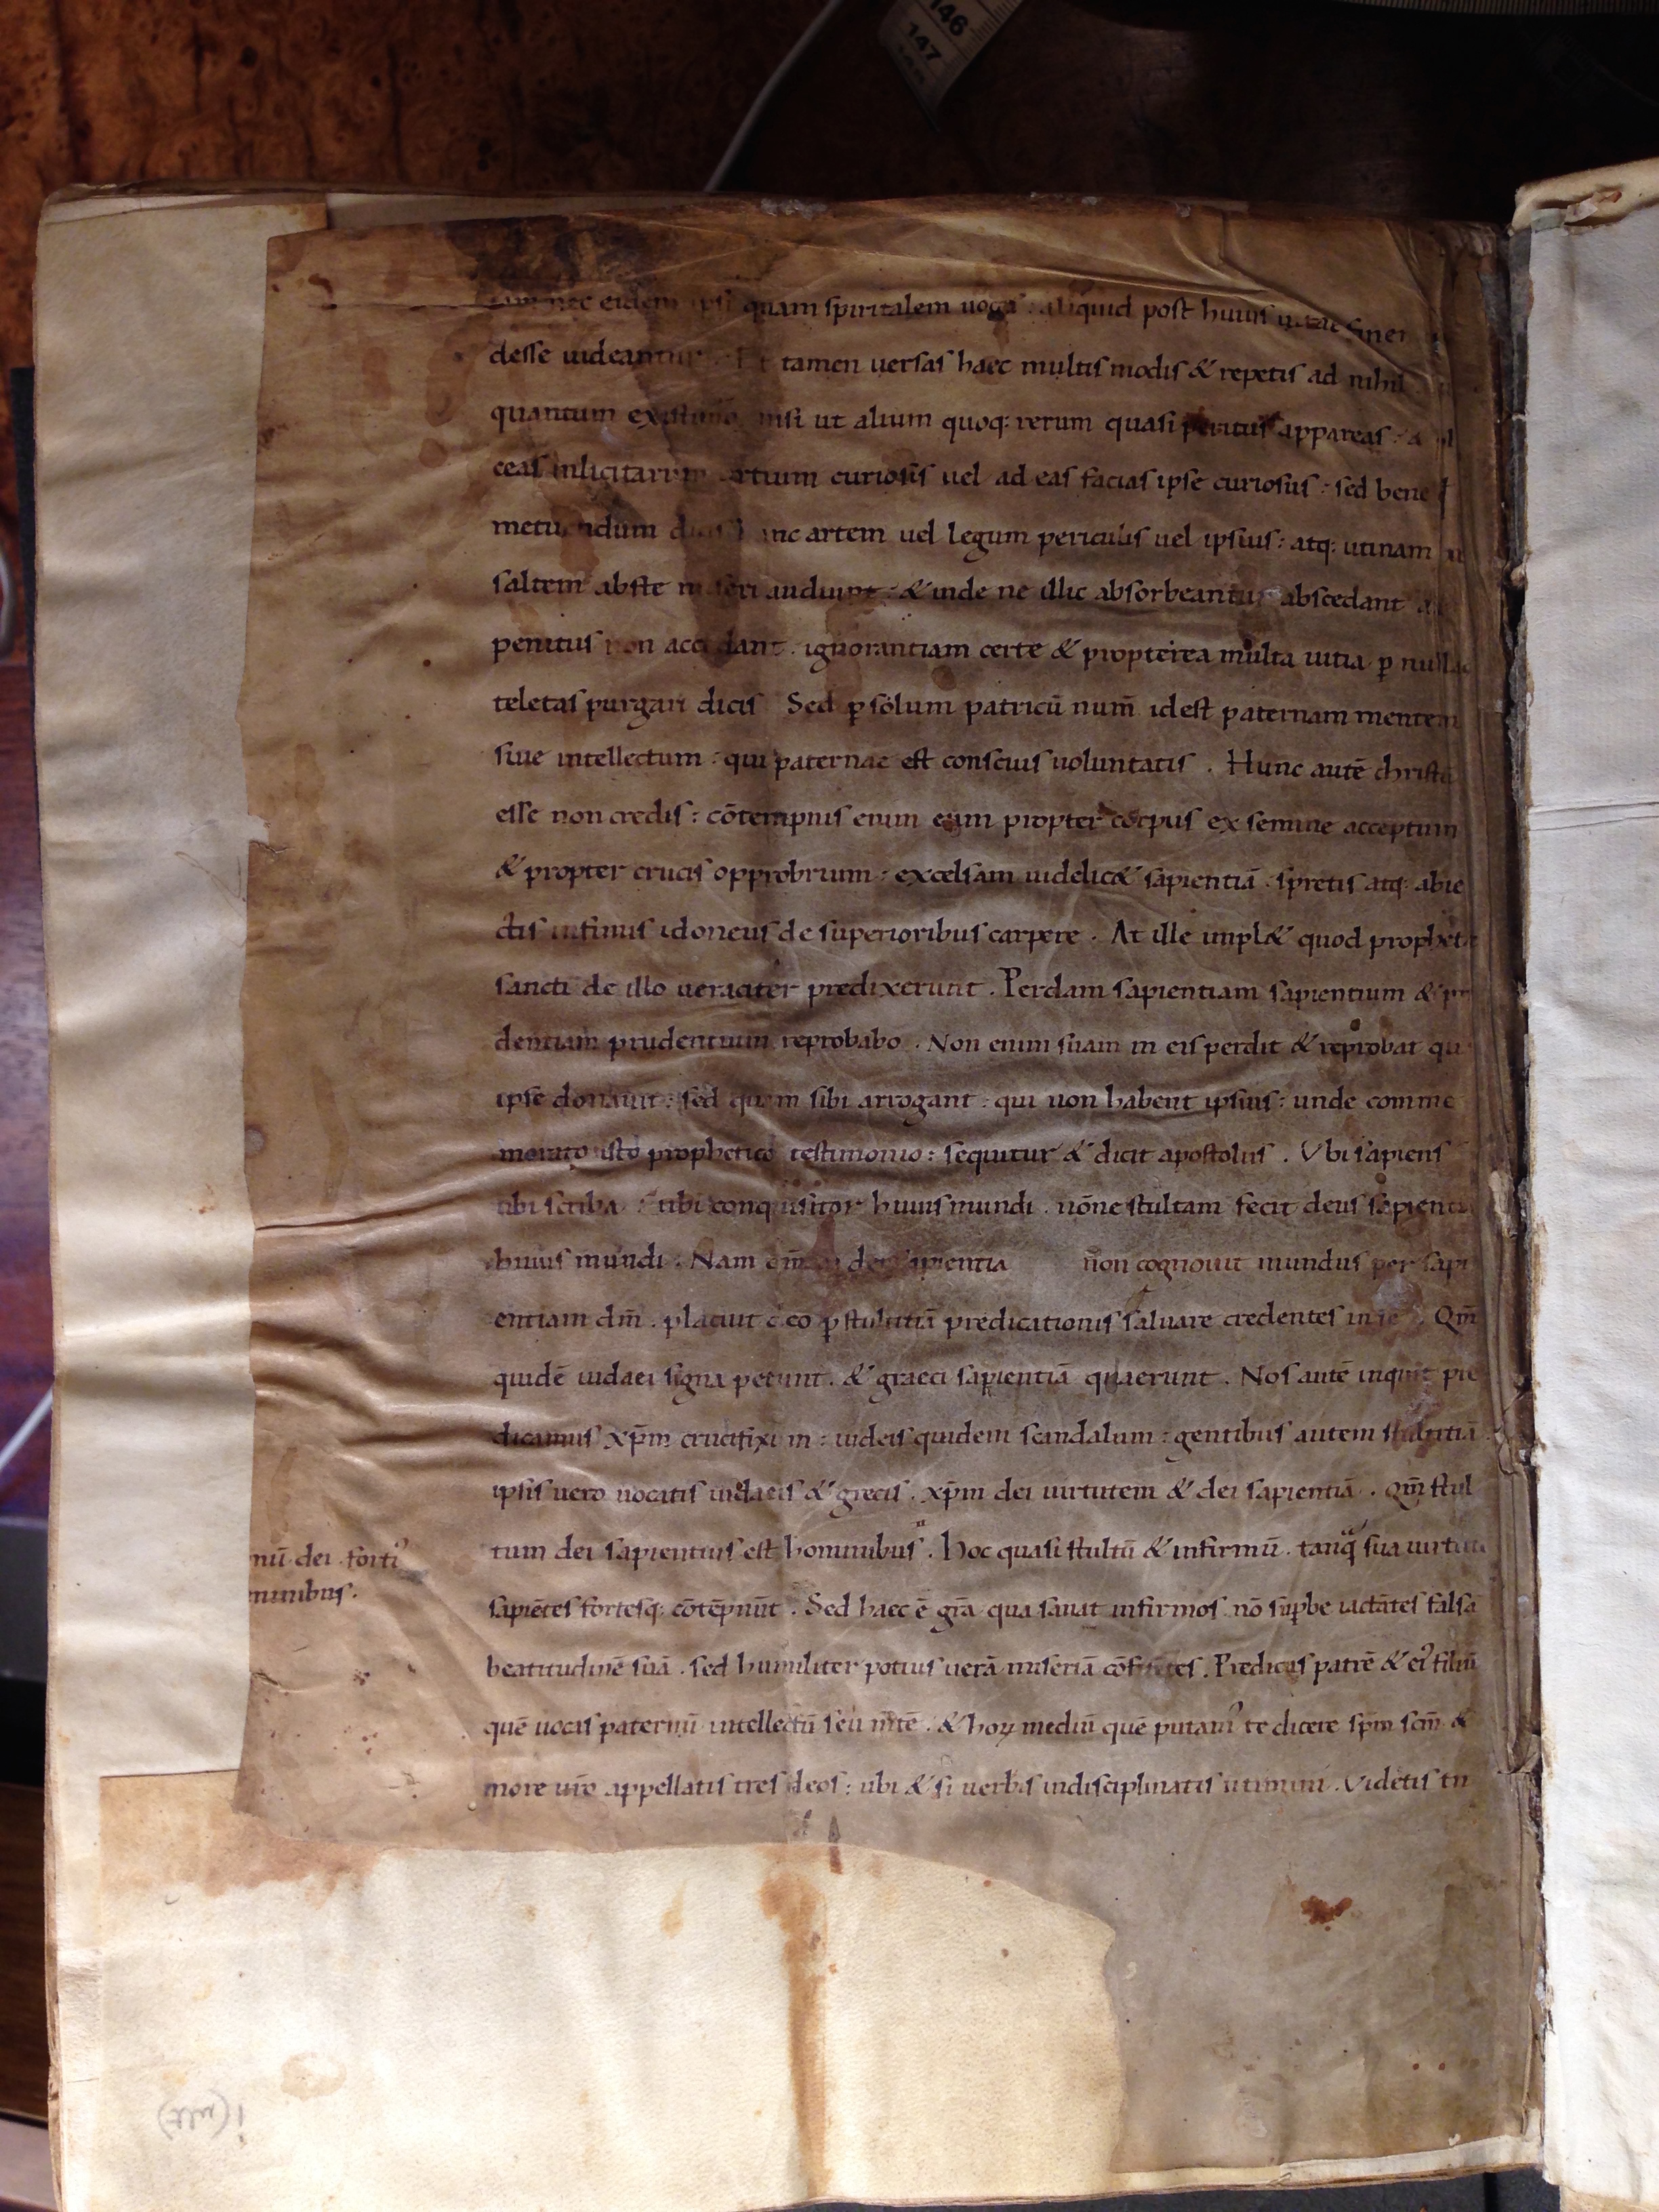 146
147
nec eidem ipsi quam spiritalem uocas : aliquid post huius uitae finem
desse uideantur . Et tamen uersas haec multis modis & repetis ad nihil
quantum existimo nisi ut alium quoq: rerum quasi peritus appareas :
ceas inlicitarum artium curiosis uel ad eas facias ipse curiosus : sed bene
metuendum dicis hanc artem uel legum periculis uel ipsius : atq: utinam
saltem abste miseri audiunt : & inde ne illic absorbeantur abscedant
penitus non accedant . ignorantiam certe & propterea multa uitia p nullas
teletas purgari dicis Sed p solum patricū num̄ idest paternam mentem
siue intellectum : qui paternae est conscius uoluntatis . Hunc autē christū
esse non credis : cōtempnis enim eum propter corpus ex femine acceptum
& propter crucis opprobrium : excelsam uidelic& sapientiā . spretis atq: abie
ctis infimis idoneus de superioribus carpere . At ille impl& quod prophetae
sancti de illo ueraciter predixerunt . Perdam sapientiam sapientium & pru
dentiam prudentium reprobabo . Non enim suam in eis perdit & reprobat quā
ipse donauit : sed quam sibi arrogant : qui non habent ipsius : unde comme
morato isto prophetico testimonio : sequitur & dicit apostolus . Vbi sapiens
ubi scriba : ubi conquisitor huius mundi . nōne stultam fecit deus sapientiā
huius mundi . Nam qm̄ dei sapientia non cognouit mundus per sapi
entiam dm̄ . placuit deo p stultitiā predicationis saluare credentes in Qm̄
quidē iudaei signa petunt . & graeci sapientiā quaerunt . Nos autē inquit pre
dicamus xp̄m crucifixum : iudeis quidem scandalum : gentibus autem stultitiā
ipsis uero uocatis iudaeis & grecis . xp̄m dei uirtutem & dei sapientiā . Qm̄ stul
tum dei sapientius est hominibus . Hoc quasi stultū & infirmū . tanq̄ sua uirtute
nū dei . forti᾽
minibus .
sapiētes fortesq: cōtēpnūt . Sed haec ē grā qua sanat infirmos nō supbe iactātes falsā
beatitudinē suā . sed humiliter potius uerā miseriā cōfitētes . Predicas patrē & ei᾽ filiū
quē uocas paternū intellectū seu mtē . & hoꝝ mediū quē putam᾽ te dicere sp̄m scm̄ &
more uro appellatis tres deos : ubi & si uerbis indisciplinatis utimini . Videtis tn